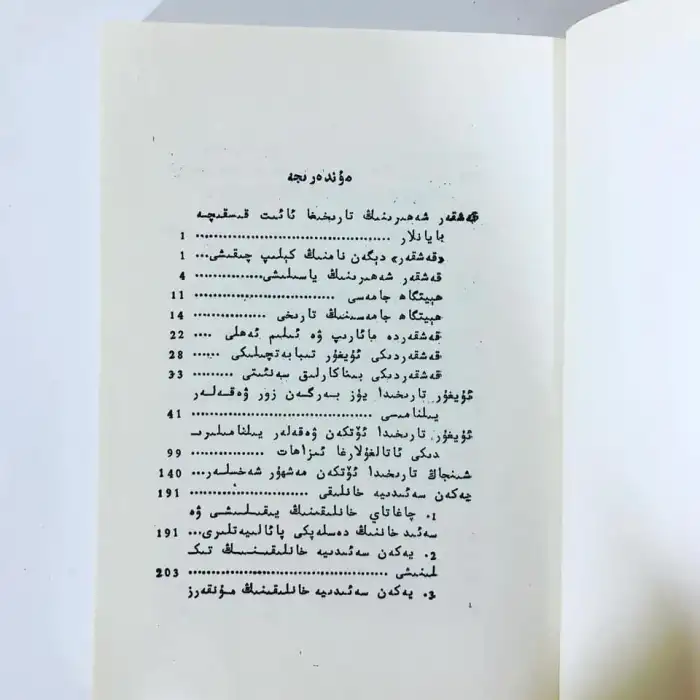 مۇندەرىجە
قەشقەر شەھىرىنىڭ تارىخىغا ئائىت قىسقىچە
بايانلار .......................................... 1
«قەشقەر» دېگەن نامنىڭ كېلىپ چىقىشى... 1
قەشقەر شەھىرىنىڭ ياسىلىشى............... 4
ھېيتگاھ جامەسى .............................. 11
ھېيتگاھ جامەسىنىڭ تارىخى ................ 14
قەشقەردە مائارىپ ۋە ئىلىم ئەھلى .... 22
قەشقەردىكى ئۇيغۇر تىبابەتچىلىكى ...... 28
قەشقەردىكى بىناكارلىق سەنئىتى ......... 33
ئۇيغۇر تارىخىدا يۈز بەرگەن زور ۋەقەلەر
يىلنامىسى ...................................... 41
ئۇيغۇر تارىخىدا ئۆتكەن ۋەقەلەر يىلنامىلىرى
دىكى ئاتالغۇلارغا ئىزاھات .................. 99
شىنجاڭ تارىخىدا ئۆتكەن مەشھۇر شەخىسلەر... 140
يەكەن سەئىدىيە خانلىقى ........................ 191
1. چاغاتاي خانلىقىنىڭ يىقىلىشى ۋە
سەئىد خاننىڭ دەسلەپكى پائالىيەتلىرى... 191
2. يەكەن سەئىدىيە خانلىقىنىڭ تىك
لىنىشى .......................................... 203
3. يەكەن سەئىدىيە خانلىقىنىڭ مۇنقەرز